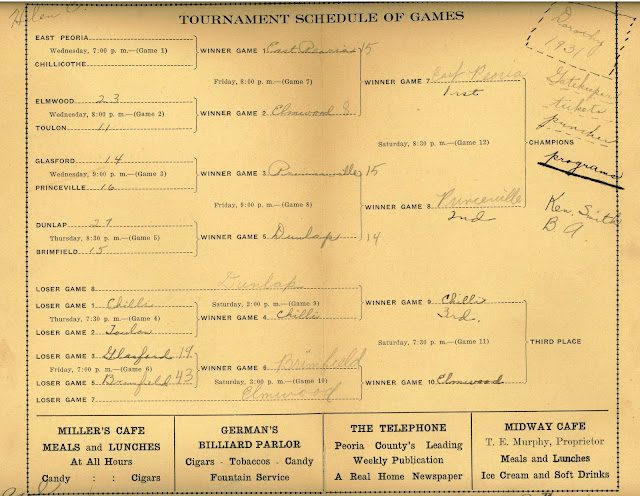 Helen
TOURNAMENT SCHEDULE OF GAMES
EAST PEORIA
Wednesday, 7:00 p. m.—(Game 1)
CHILLICOTHE
WINNER GAME 1 East Peoria 15
Friday, 8:00 p. m.—(Game 7)
ELMWOOD 23
Wednesday, 8:00 p. m.—(Game 2)
TOULON 11
WINNER GAME 2 Elmwood 8
WINNER GAME 7 East Peoria
1rst
Saturday, 8:30 p. m.—(Game 12)
CHAMPIONS
GLASFORD 14
Wednesday, 9:00 p. m.—(Game 3)
PRINCEVILLE 16
WINNER GAME 3 15
Friday, 9:00 p. m.—(Game 8)
DUNLAP 27
Thursday, 8:30 p. m.—(Game 5)
BRIMFIELD 15
WINNER GAME 5 Dunlap 14
WINNER GAME 8 Princeville
2nd
Dorothy
1931
tickets
puncher
programs
Ken Smith
B A
LOSER GAME 8 Dunlap
Saturday, 2:00 p. m.—(Game 9)
LOSER GAME 1 Chilli
Thursday, 7:30 p. m.—(Game 4)
LOSER GAME 2 Toulon
WINNER GAME 4 Chilli
WINNER GAME 9 Chilli
3rd.
Saturday, 7:30 p. m.—(Game 11)
THIRD PLACE
LOSER GAME 3 Glasford 19
Friday, 7:00 p. m.—(Game 6)
LOSER GAME 5 Brimfield 43
WINNER GAME 6 Brimfield
Saturday, 3:00 p. m.—(Game 10)
LOSER GAME 7 Elmwood
WINNER GAME 10 Elmwood
MILLER'S CAFE
MEALS and LUNCHES
At All Hours
Candy : : Cigars
GERMAN'S
BILLIARD PARLOR
Cigars - Tobaccos - Candy
Fountain Service
THE TELEPHONE
Peoria County's Leading
Weekly Publication
A Real Home Newspaper
MIDWAY CAFE
T. E. Murphy, Proprietor
Meals and Lunches
Ice Cream and Soft Drinks